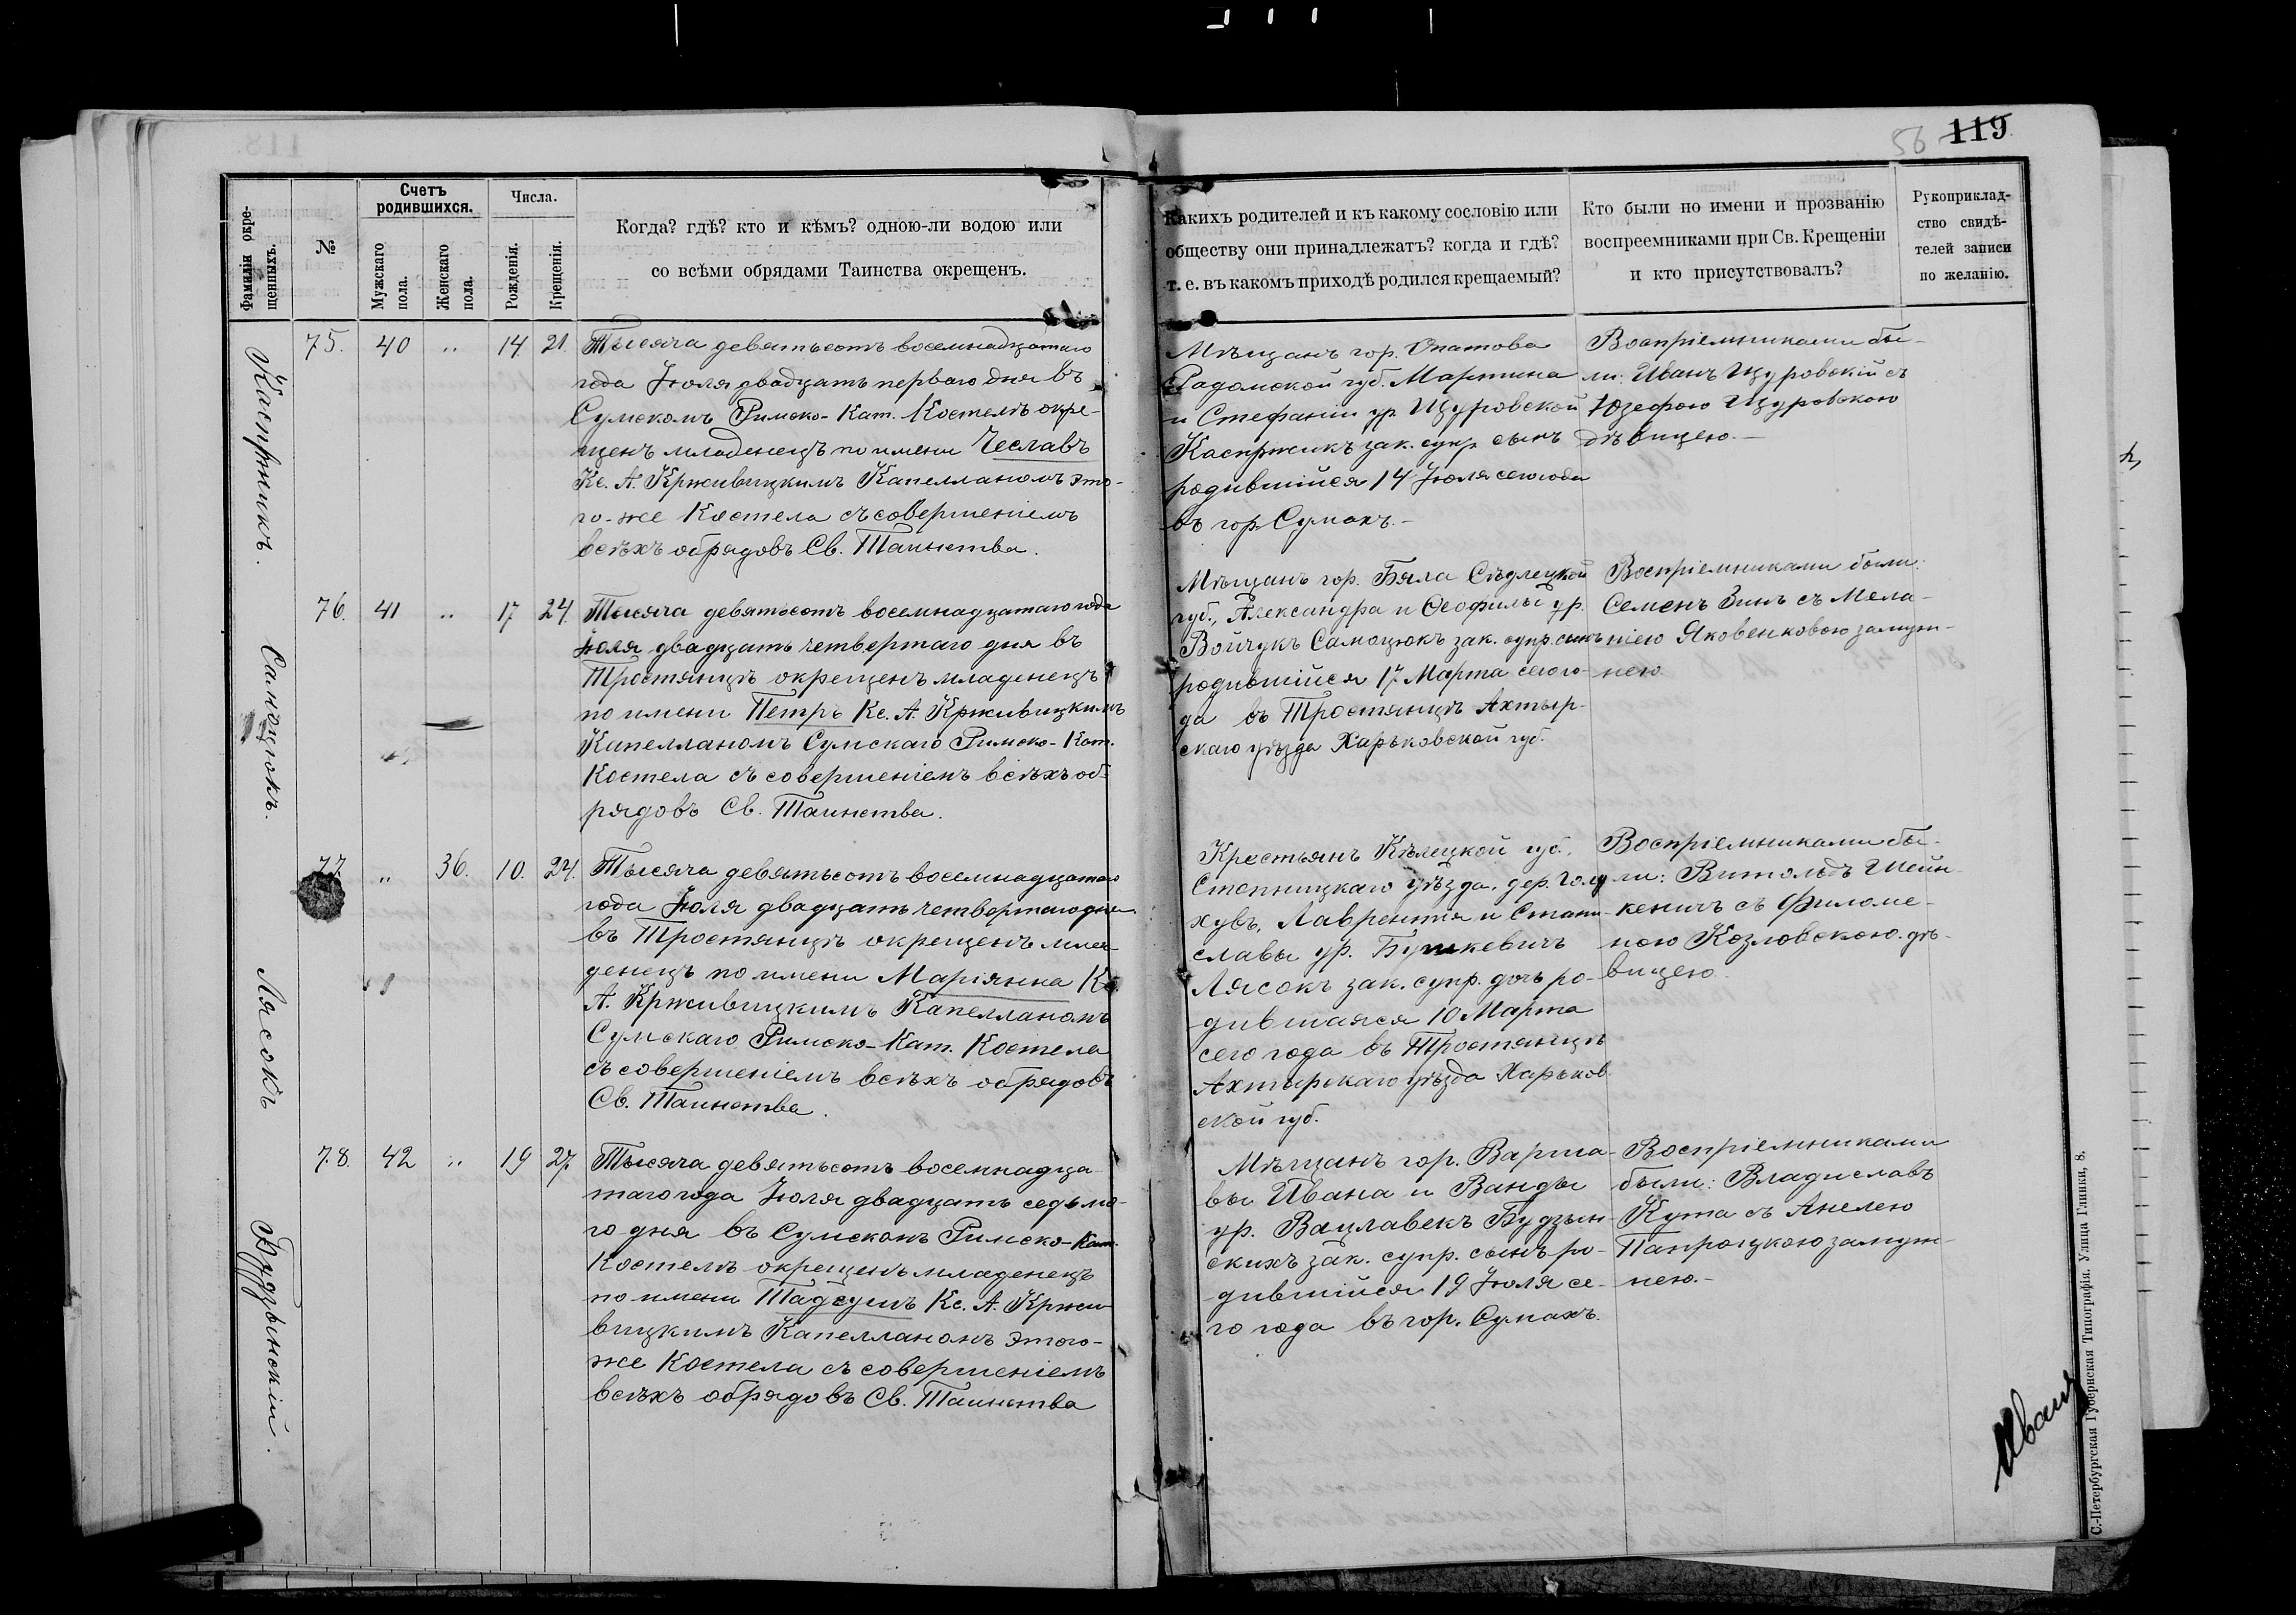 56 119
Фамиліи окре-
щенныхъ.
№
Счетъ
родившихся.
Мужскаго
пола.
Женскаго
пола.
Числа.
Рожденія.
Крещенія.
Когда? гдѣ? кто и кѣмъ? одною-ли водою или
со всѣми обрядами Таинства окрещенъ.
Какихъ родителей и къ какому сословію или
обществу они принадлежатъ? когда и гдѣ?
т. е. въ какомъ приходѣ родился крещаемый?
Кто были по имени и прозванію
воспреемниками при Св. Крещеніи
и кто присутствовалъ?
Рукоприклад-
ство свидѣ-
телей записи
по желанію.
Каспржикъ.
75. 40 „ 14 21
Тысяча девятьсотъ восемнадцатаго
года Іюля двадцать перваго дня въ
Сумскомъ Римско-Кат. Костелѣ окре-
щенъ младенецъ по имени Чеславъ
Кс. А. Крживицкимъ Капелланомъ это-
го-же Костела съ совершеніемъ
всѣхъ обрядовъ Св. Таинства.
Мѣщанъ гор. Опатова
Радомской губ. Мартина
и Стефаніи ур. Щуровской
Каспржикъ зак. супр. сынъ
родившійся 14 Іюля сего года
въ гор. Сумахъ.-
Воспріемниками бы-
ли: Иванъ Щуровскій съ
Юзефою Щуровскою
дѣвицею.-
Самоцюкъ.
76. 41 „ 17 24.
Тысяча девятьсотъ восемнадцатаго года
Іюля двадцать четвертаго дня въ
Тростянцѣ окрещенъ младенецъ
по имени Петръ Кс. А. Крживицкимъ
Капелланомъ Сумскаго Римско-Кат.
Костела съ совершеніемъ всѣхъ об-
рядовъ Св. Таинства.
Мѣщанъ гор. Бяла Сѣдлецкой
губ., Александра и Ѳеофилы ур.
Войчукъ Самоцюкъ зак. супр. сынъ
родившійся 17 Марта сего го-
да въ Тростянцѣ Ахтыр-
скаго уѣзда Харьковской губ.
Воспріемниками были:
Семенъ Зинъ съ Мела-
ніею Яковенковою замуж-
нею
Лясокъ
77. „ 36. 10. 24.
Тысяча девятьсотъ восемнадцатаго
года Іюля двадцать четвертаго дня
въ Тростянцѣ окрещенъ мла-
денецъ по имени Маріянна Кс.
А. Крживицкимъ Капелланомъ
Сумскаго Римско-Кат. Костела
съ совершеніемъ всѣхъ обрядовъ
Св. Таинства.
Крестьянъ Кѣлецкой губ.,
Стопницкаго уѣзда, дер. Голу
хувъ, Лаврентія и Стани-
славы ур. Бушкевичъ
Лясокъ зак. супр. дочь ро-
дившаяся 10 Марта
сего года въ Тростянцѣ
Ахтырскаго уѣзда Харьков
ской губ.
Воспріемниками бы-
ли: Витольдъ
съ Филоме-
ною Козловскою дѣ-
вицею.
Будзынскій.
78. 42 „ 19 27.
Тысяча девятьсотъ восемнадца
таго года Іюля двадцать седьма-
го дня въ Сумскомъ Римско-Кат.
Костелѣ окрещенъ младенецъ
по имени Тадеушъ Кс. А. Кржи
вицкимъ Капелланомъ этого-
же Костела съ совершеніемъ
всѣхъ обрядовъ Св. Таинства
Мѣщанъ гор. Варша-
вы Ивана и Ванды
ур. Вацлавекъ Будзын-
скихъ зак. супр. сынъ ро-
дившійся 19 Іюля се-
го года въ гор. Сумахъ.
Воспріемниками
были: Владиславъ
Кута съ Анелею
Папроцкою замуж-
нею.-
С.-Петербургская Губернская Типографія. Улица Глинки, 8.